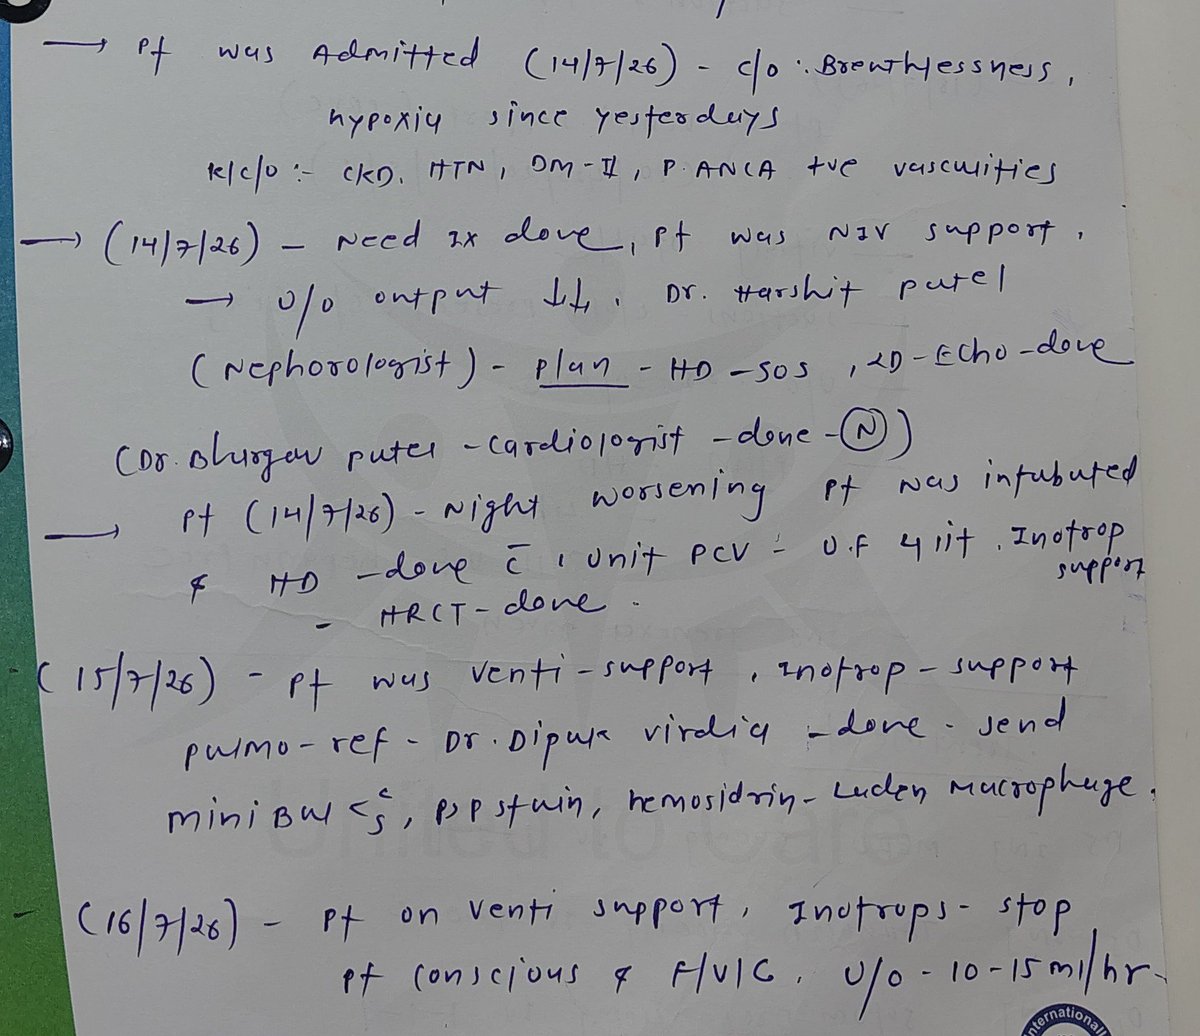 → Pt was Admitted (14/7/26) - c/o :. Breathlessness,
hypoxia since yesterdays
k/c/o :- CKD, HTN, DM-II, P. ANCA +ve vasculities
→ (14/7/26) - Need Ix done, Pt was NIV support,
→ U/O output ↓↓, Dr. Harshit patel
(Nephorologist) - plan - HD - SOS, 2D-Echo-done
(Dr. Bhargav patel - cardiologist - done - Ⓝ)
→ Pt (14/7/26) - Night worsening Pt was intubated
& HD - done c̄ 1 unit PCV - U.F 4 lit, Inotrop
support
- HRCT - done.
(15/7/26) - Pt was venti-support, Inotrop-support
pulmo-ref - Dr. Dipak virdia - done - send
mini Bal < c s, stain, hemosidrin-Luden Macrophage,
United to Care
(16/7/26) - Pt on venti support, Inotrops - stop
Pt conscious & F/V/C, U/O - 10-15 ml/hr
International